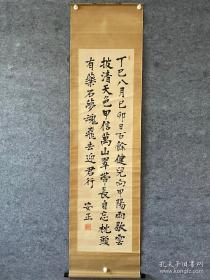 丁巳八月己卯日百餘健兒向甲陽雨歇雲
披清天色甲信萬山翠帶長自忘枕頭
有藥石夢魂飛去迎君行
安正